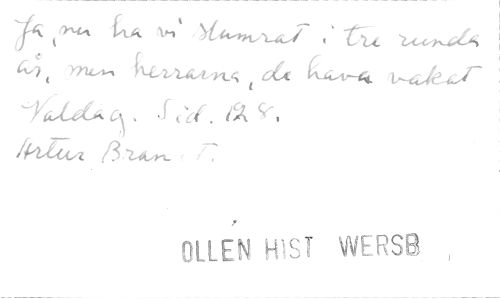 Ja, nu ha vi slumrat i tre runda
år, men herrarna, de hava vakat
Valdag. Sid. 128.
Artur Bran T.
OLLÉN HIST WERSB